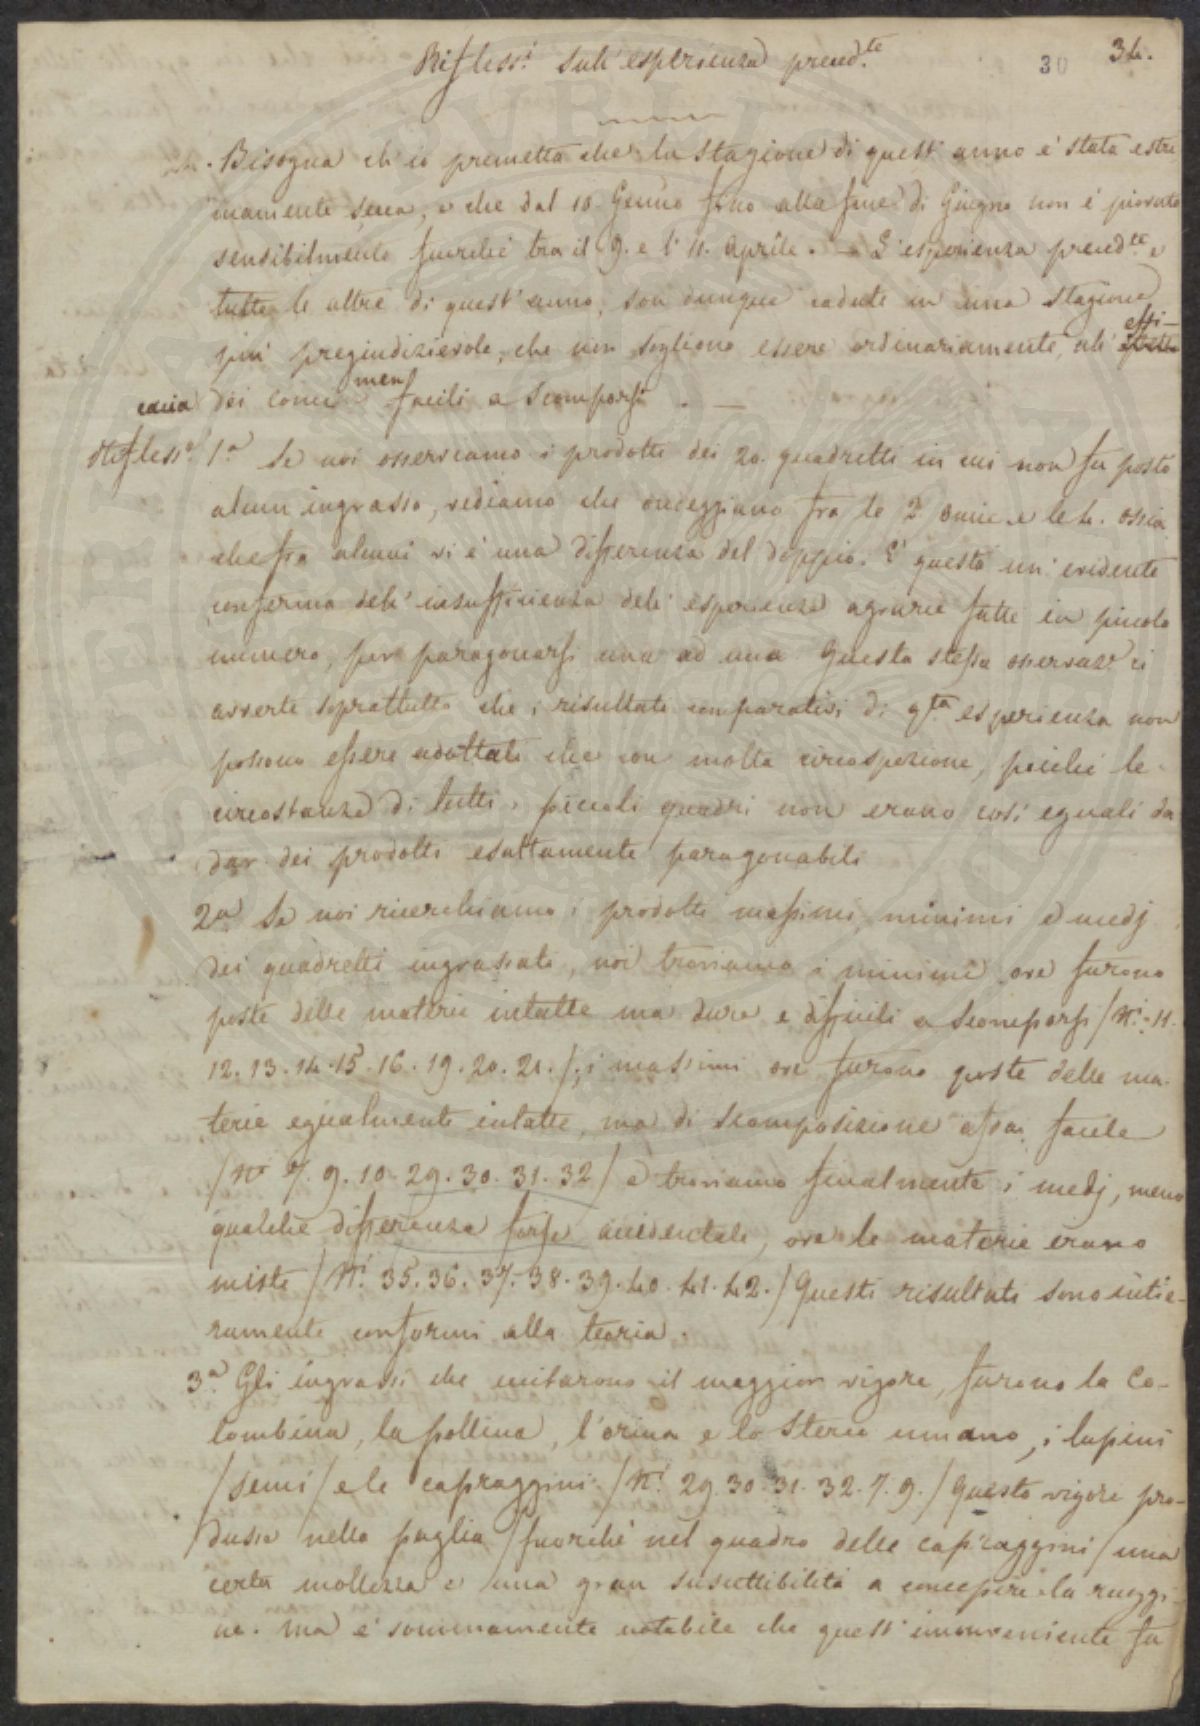 Rifless.i sull'esperienza preced.te
30 34.
Bisogna ch'io premetta che la stagione di quest'anno è stata estre
mamente secca, e che dal 10. Genn.o fino alla fine di Giugno non è piovuto
sensibilmente fuorchè tra il 9. e l'11. Aprile. – L'esperienza preced.te e
tutte le altre di quest'anno, son dunque cadute in una stagione
più pregiudizievole, che non sogliono essere ordinariamente, all' effi-
cacia dei conci men facili a scomporsi. —
Rifless.e 1.a Se noi osserviamo i prodotti dei 20. quadretti in cui non fu posto
alcun ingrasso, vediamo che ondeggiano fra le 2 oncie e le 4. ossia
che fra alcuni vi è una differenza del doppio. È questa un'evidente
conferma dell'insufficienza dell'esperienze agrarie fatte in piccolo
numero, per paragonarsi una ad una. Questa stessa osservaz.e ci
avverte soprattutto che i risultati comparativi di q.ta esperienza non
possono essere adottati che con molta circospezione, poichè le
circostanze di tutti i piccoli quadri non erano così eguali da
dar dei prodotti esattamente paragonabili
2.a Se noi ricerchiamo i prodotti massimi, minimi e medj
dei quadretti ingrassati, noi troviamo i minimi ove furono
poste delle materie intatte ma dure e difficili a scomporsi / N.i 11.
12. 13. 14. 15. 16. 19. 20. 21. /; i massimi ove furono poste delle ma-
terie egualmente intatte, ma di scomposizione assai facile
/ N.i 7. 9. 10. 29. 30. 31. 32 / e troviamo finalmente i medj, meno
qualche differenza forse accidentale, ove le materie erano
miste / N.i 35. 36. 37. 38. 39. 40. 41. 42. / Questi risultati sono intie-
ramente conformi alla teoria.
3.a Gli ingrassi che eccitarono il maggior vigore, furono la Co-
lombina, la pollina, l'orina e lo sterco umano, i lupini
/ semi / e le capraggini / N.i 29. 30. 31. 32. 7. 9. / Questo vigore pro-
dusse nella paglia / fuorchè nel quadro delle capraggini / una
certa mollezza e una gran suscettibilità a concepire la ruggi-
ne. Ma è sommamente notabile che quest'inconveniente fu